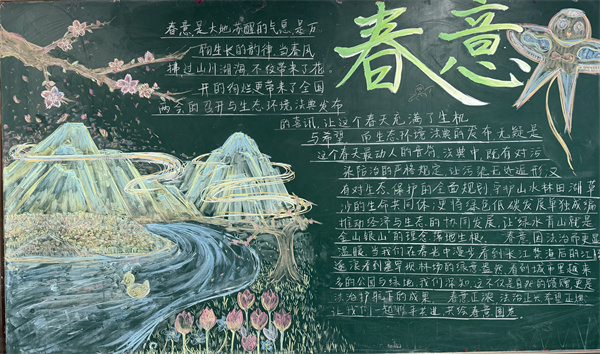 春意
春意是大地苏醒的气息,是万
物生长的韵律,当春风
拂过山川湖海,不仅带来了花
开的绚烂更带来了全国
两会的召开与生态环境法典发布
的喜讯,让这个春天充满了生机
与希望 而生态环境法典的发布,无疑是
这个春天最动人的音符,法典中,既有对污
染防治的严格规定,让污染无处遁形,又
有对生态保护的全面规划守护山水林田湖草
沙的生命共同体,更将绿色低碳发展单独成编
推动经济与生态的协同发展,让绿水青山就是
金山银山"的理念落地生根。 春意,因法治而更显
温暖,当我们在春光中漫步看到长江禁渔后的江
遥望看到塞罕坝林场的绿意盎然,看到城市里越来
多的公园与绿地,我们深知,这不仅是自然的馈赠,更是
法治护航下的成果 春意正浓,法治正兴希望正
让我们一起 手 进 共绘春意图卷